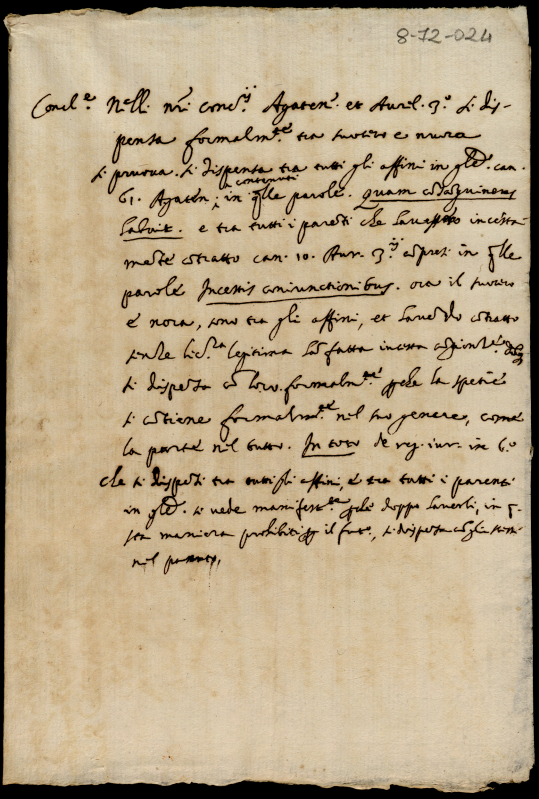 8-72-024
Concl.e Nelli nri concij Agaten. et Aurel. 3.o si dis-
pensa formalm.te tra suocero e nuora
si pruova. si dispensa tra tutti gli affini in can.
contenuti
61. Agaten. in q̃lle parole. quam cõsãguineus
habuit. e tra tutti i parẽti che havessero incesta
mẽte cõtratto can. 10. Aur. 3.ij cõpresi in q̃lle
parole Incestis coniunctionibus. ora il suocero
e nora, sono tra gli affini, et havẽdo cõtratto
senza lic.za legitima hãno fatta incesta
si dispẽsa cõ loro formalm.te p̃che la spetie
si cõtiene formalm.te nel suo genere, come
la parte nel tutto. In toto de reg. iur. in 6.o
che si dispẽsi tra tutti gli affini, e tra tutti i parenti
in si vede manifest.te p̃che doppo haverli, in q̃-
sta maniera prohibiti p̃ il fut.o, si dispẽsa
nel passato,